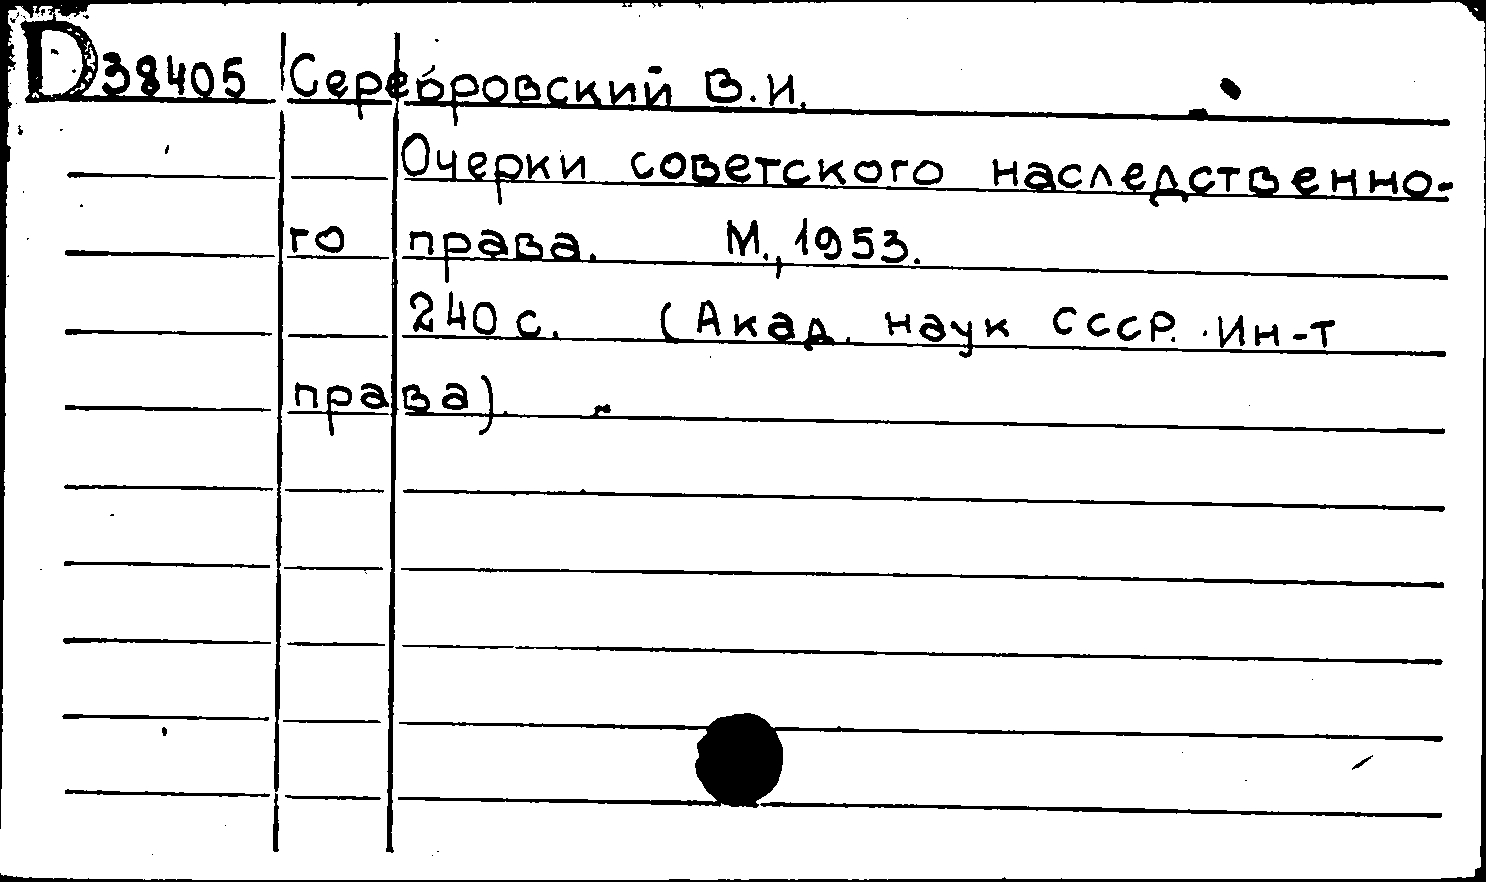 D38405 Серебровский В.И.
Очерки советского наследственно-
го права. М., 1953.
240 с. (Акад. наук СССР. Ин-т
права).